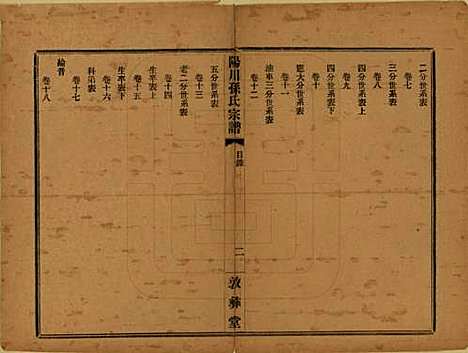 二分世系表
卷七
三分世系表
卷八
四分世系表上
卷九
四分世系表下
卷十
卷十一
三分世系表
卷十二
陽川孫氏宗譜
目錄
二
敦彝堂
五分世系表
卷十三
老二分世系表
卷十四
生卒表上
卷十五
生卒表下
卷十六
科第表
卷十七
卷十八